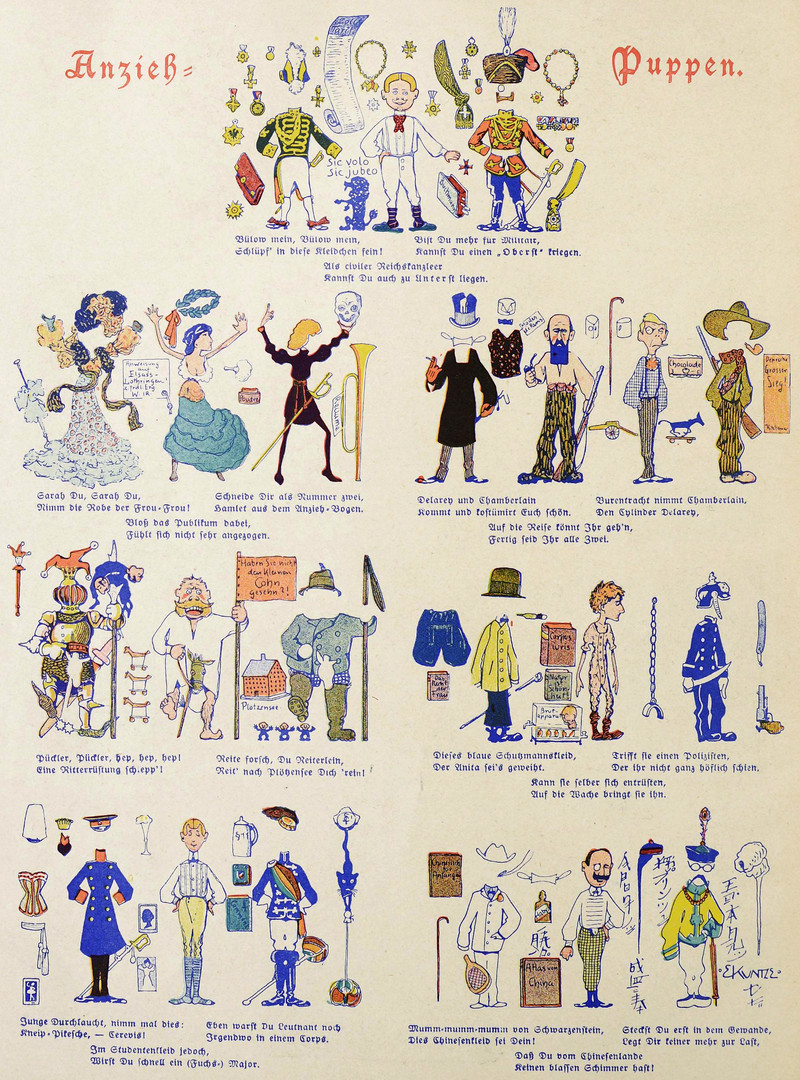 Anzieh=
Puppen.
Zoll
Tarif
Sic volo
Sic jubeo
Bülow mein, Bülow mein,
Schlüpf' in diese Kleidchen fein!
Bist Du mehr für Militair,
Kannst Du einen „Oberst“ kriegen.
Als civiler Reichskanzleer
Kannst Du auch zu Unterst liegen.
Anweisung
auf
Elsass-
Lothringen
W. I.R.
Puder
Sarah Du, Sarah Du,
Nimm die Robe der Frou-Frou!
Schneide Dir als Nummer zwei,
Hamlet aus dem Anzieh-Bogen.
Bloß das Publikum dabei,
Fühlt sich nicht sehr angezogen.
Chocolade
Depesche
Grosser
Sieg!
Delarey und Chamberlain
Kommt und kostümirt Euch schön.
Burentracht nimmt Chamberlain,
Den Cylinder Delarey,
Auf die Reise könnt Ihr geh'n,
Fertig seid Ihr alle Zwei.
Haben Sie nicht
den kleinen
Cohn
gesehn?!
Plötzensee
Pückler, Pückler, hep, hep, hep!
Eine Ritterrüstung schlepp'!
Reite forsch, Du Reiterlein,
Reit' nach Plötzensee Dich 'rein!
Corpus
juris
Das
Recht
der
Frau
Natur
ist
Schön-
heit
Brut-
apparat
Dieses blaue Schutzmannskleid,
Der Anita sei's geweiht.
Trifft sie einen Polizisten,
Der ihr nicht ganz höflich schien.
Kann sie selber sich entrüsten,
Auf die Wache bringt sie ihn.
§11
Junge Durchlaucht, nimm mal dies:
Kneip-Pikesche, — Cerevis!
Eben warst Du Leutnant noch
Irgendwo in einem Corps.
Im Studentenkleid jedoch,
Wirst Du schnell ein (Fuchs-) Major.
Chinesisch
für
Anfänger
Atlas von
China
EKUNTZE
Mumm-mumm-mumm von Schwarzenstein,
Dies Chinesenkleid sei Dein!
Steckst Du erst in dem Gewande,
Legt Dir keiner mehr zur Last,
Daß Du vom Chinesenlande
Keinen blassen Schimmer hast!